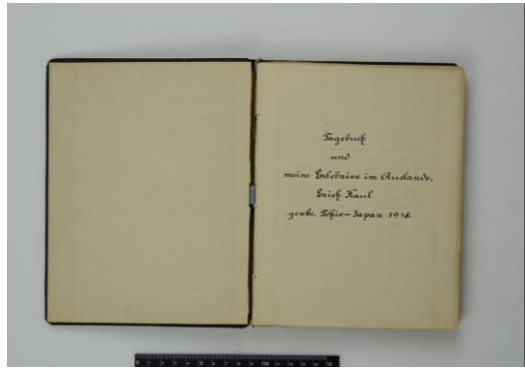 Tagebuch
und
meine Erlebnisse im Auslande.
Erich Kaul
geschr. Japan 191